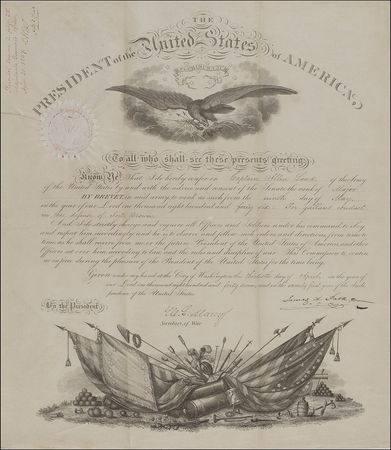 THE
PRESIDENT of the United States of AMERICA,
To all who shall see these presents greeting:
Know Ye That I do hereby confer on Captain Allen of the Army
of the United States by and with the advice and consent of the Senate the rank of Major
BY BREVET in said army, to rank as such from the ninth day of May,
in the year of our Lord one thousand eight hundred and forty six: For gallant conduct
in the defence of Fort Brown.
And I do strictly charge and require all Officers and Soldiers under his command to obey
and respect him accordingly and he is to observe and follow such orders and directions from time to
time as he shall receive from me or the future President of the United States of America and other
Officers set over him according to law and the rules and discipline of war. This Commission to continue
in force during the pleasure of the President of the United States for the time being.
GIVEN under my hand at the City of Washington this day of April, in the year of
our Lord one thousand eight hundred and forty seven, and in the seventy first year of the Inde-
pendence of the United States.
By the President,
James K. Polk
W. L. Marcy
Secretary of War